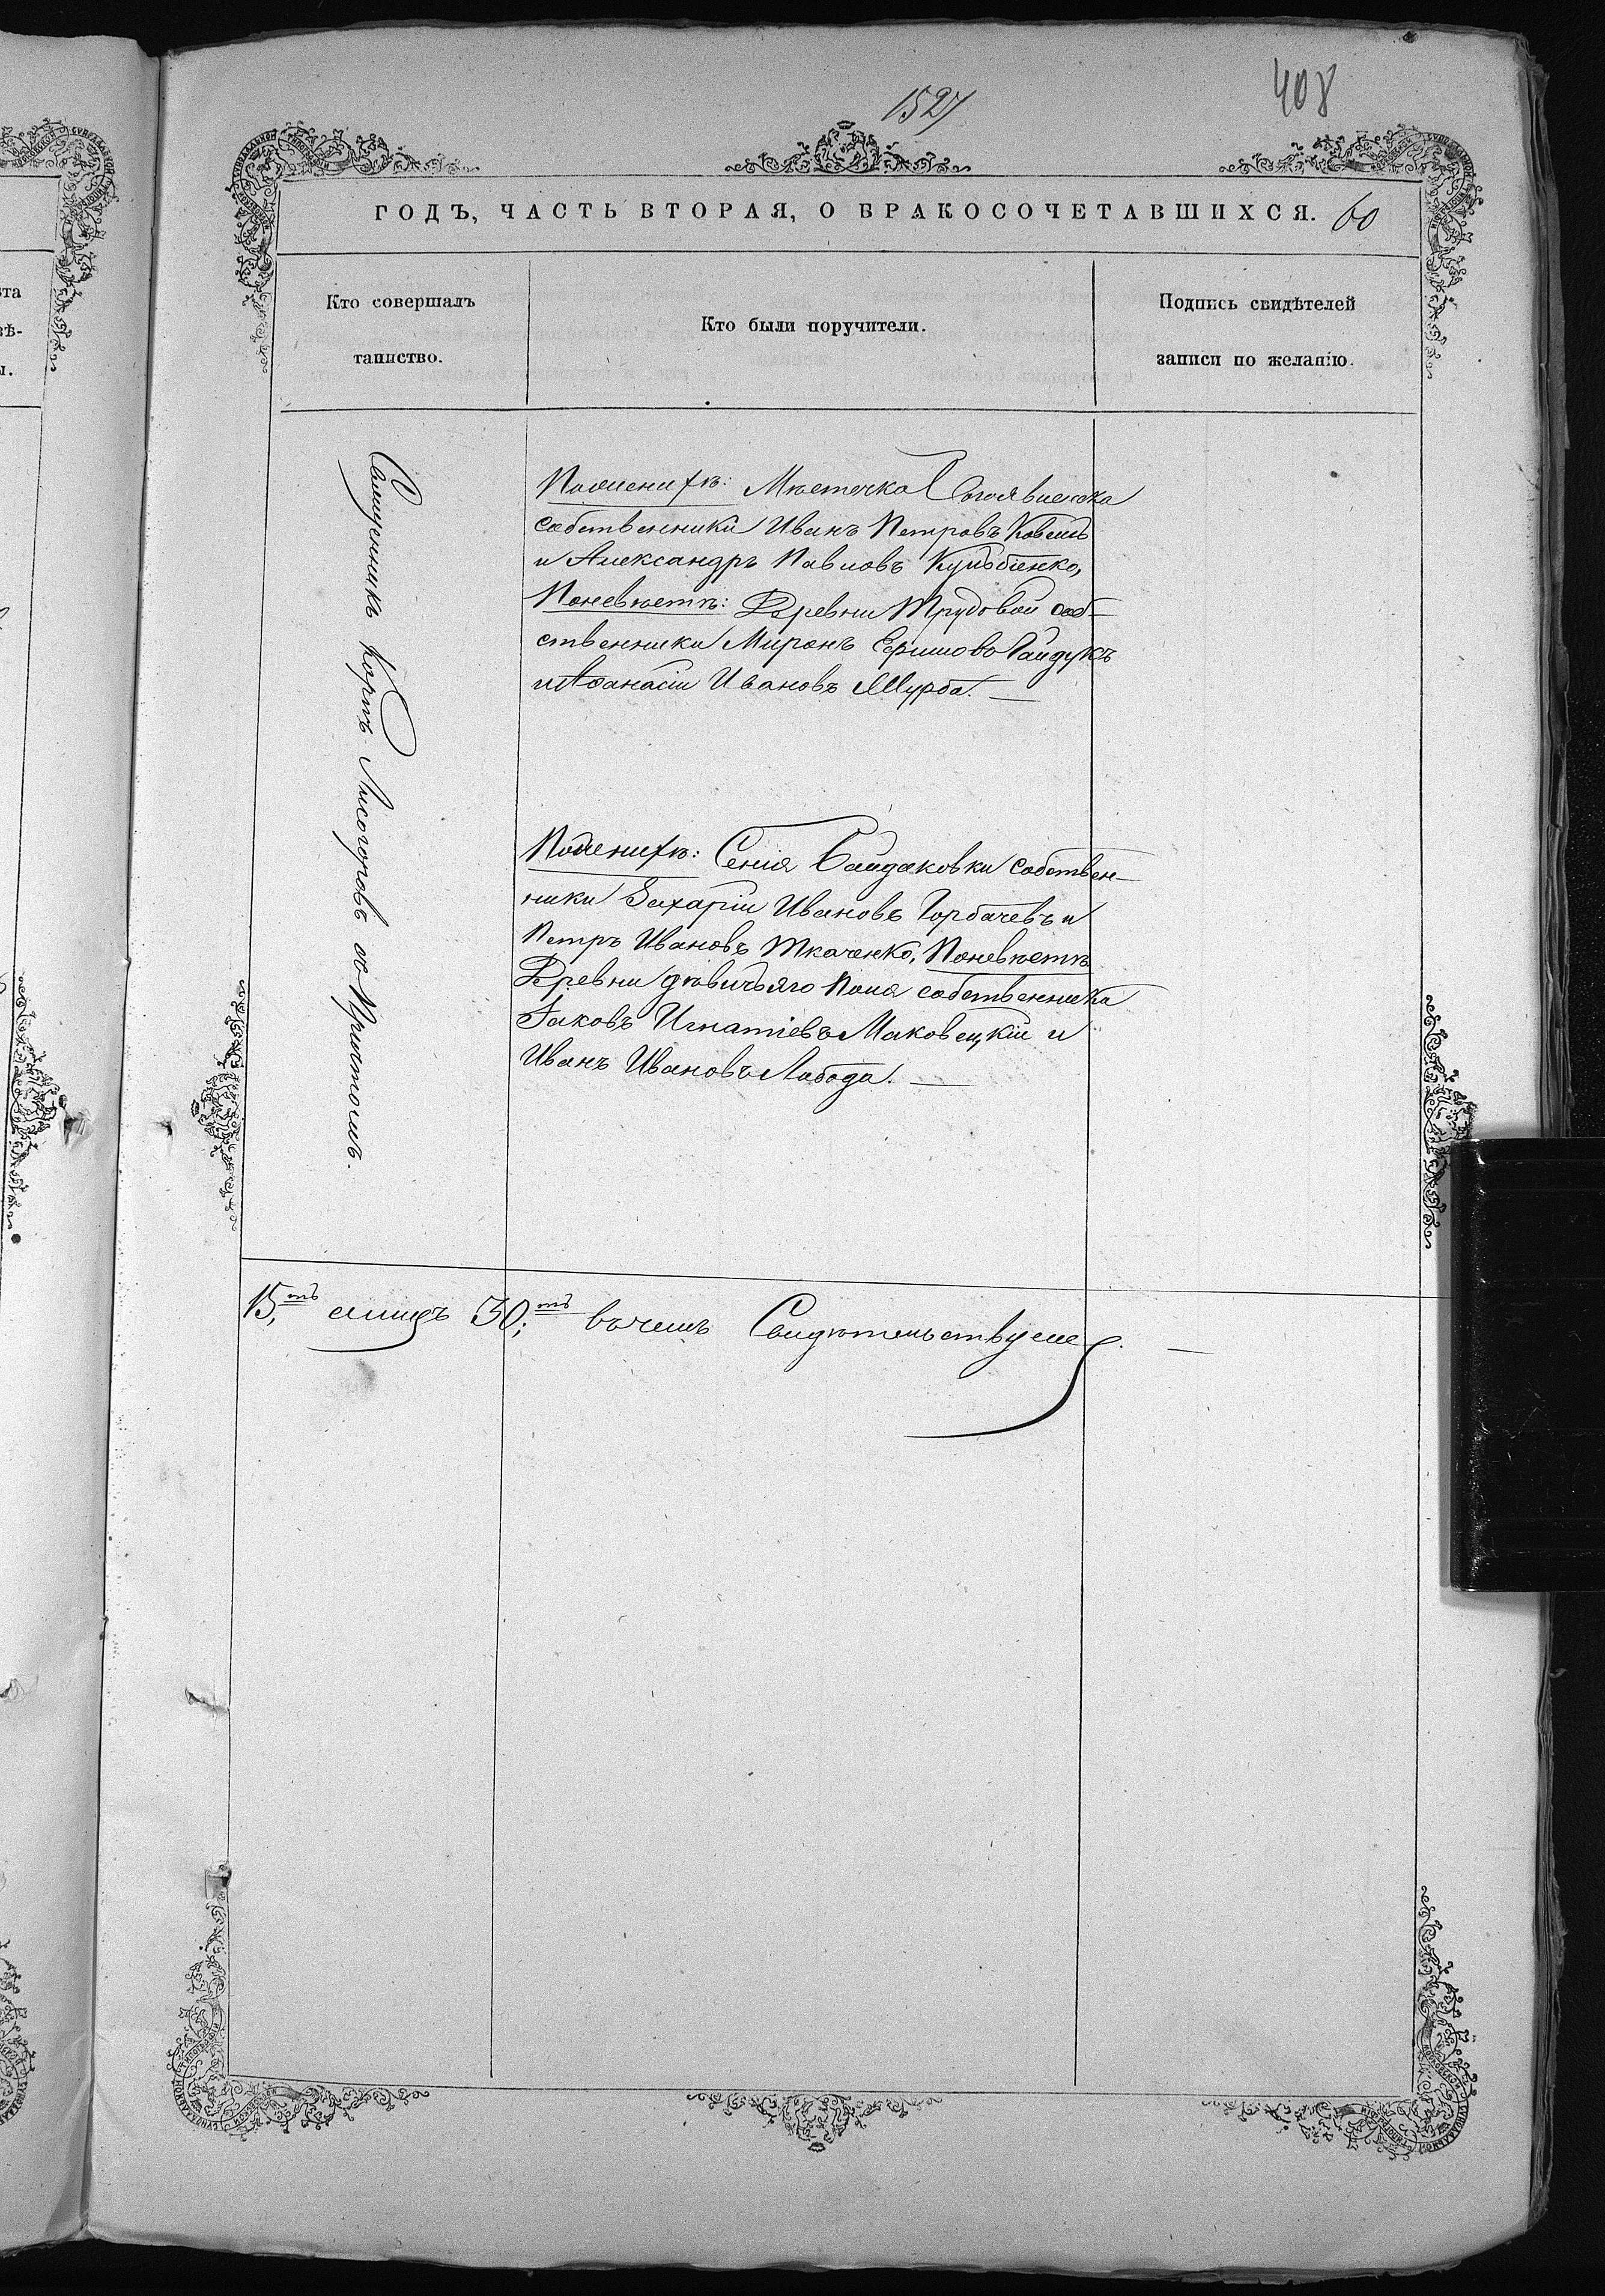 1527
408
ГОДЪ, ЧАСТЬ ВТОРАЯ, О БРАКОСОЧЕТАВШИХСЯ. 60
Кто совершалъ
таинство.
Кто были поручители.
Подпись свидѣтелей
записи по желанію.
Священникъ Карпъ Лисогоровъ съ Причтомъ.
Поженихѣ: Мѣстечка
собственники Иванъ Петровъ
и Александръ Павловъ
Поневѣстѣ: Деревни Трудовой соб-
ственники Миронъ Гайдукъ
и Аѳанасій Ивановъ Шурба.
Поженихѣ: Сенія Байдаковки собствен-
ники Захарій Ивановъ Горбачевъ и
Петръ Ивановъ Ткаченко, Поневѣстѣ
Деревни Дѣвичьяго Поля собственника
Іаковъ Игнатіевъ Маковецкій и
Иванъ Ивановъ Лабода.
15,тъ а лицъ 30;тъ въ чемъ Свидѣтельствуемъ.